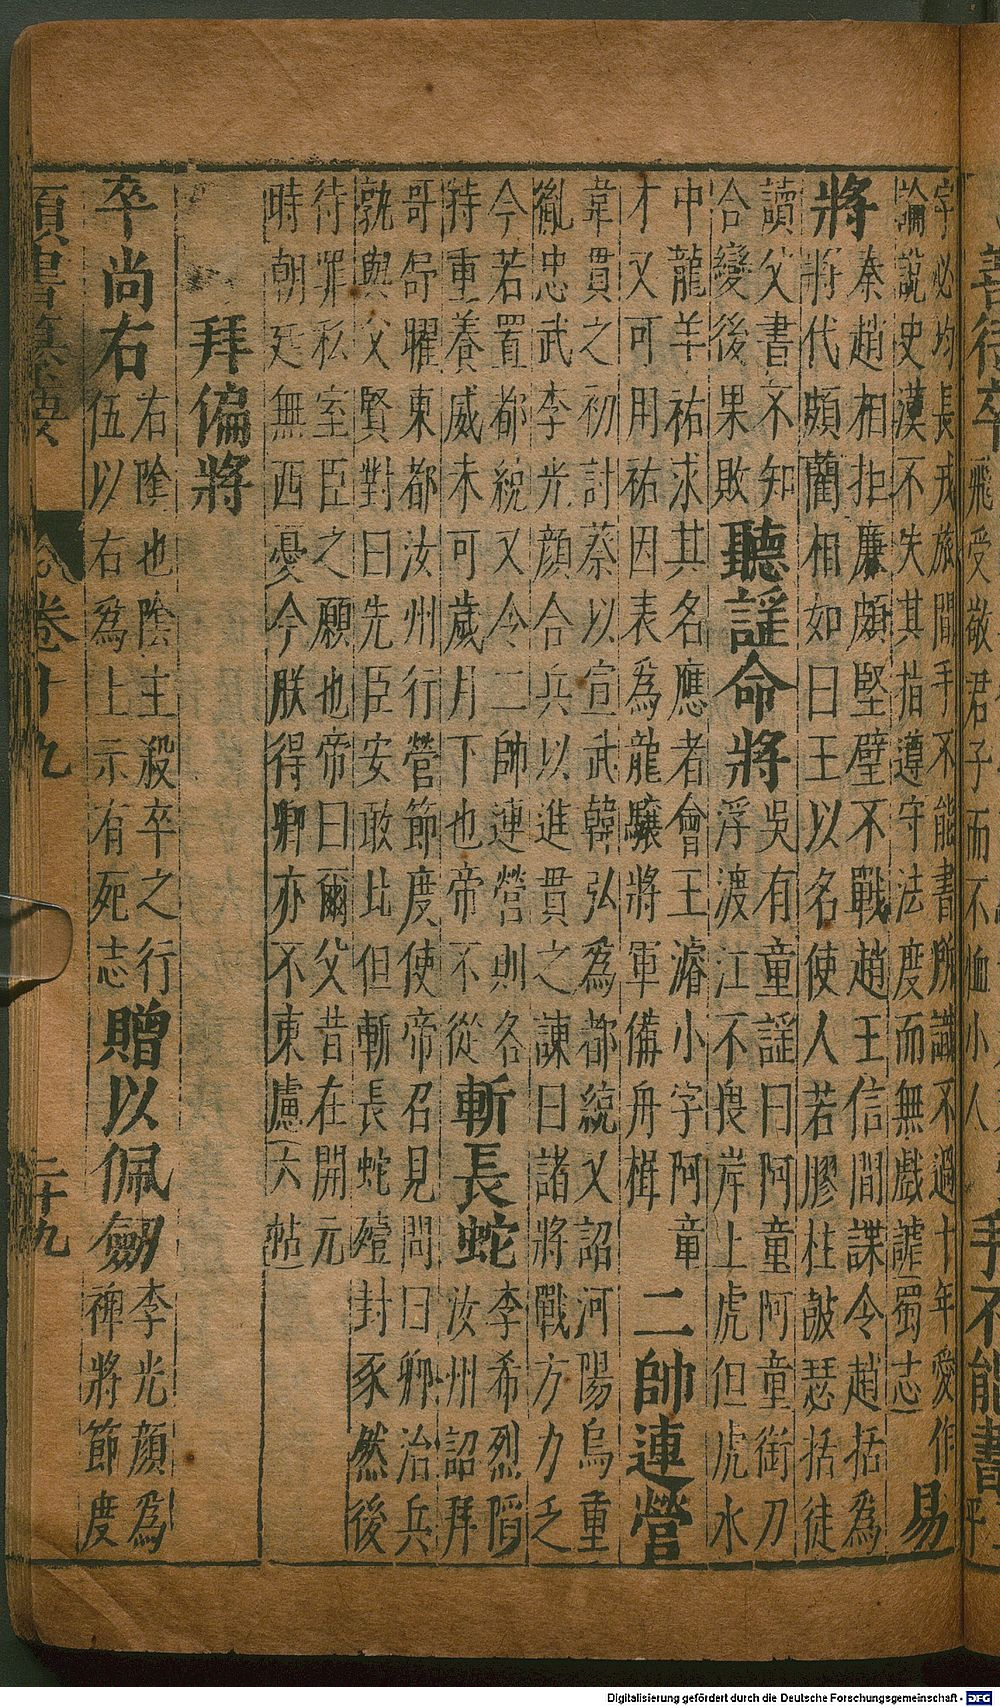 善待卒飛受敬君子而不恤小人手不能書平
字必均長戎旅間手不能書所識不過十年愛作
論說史漢不失其指遵守法度而無戲謔蜀志
易
將
秦趙相拒廉頗堅壁不戰趙王信間諜令趙括為
將代頗藺相如曰王以名使人若膠柱鼓瑟括徒
讀父書不知
合變後果敗
聽謡命將
吳有童謡曰阿童阿童銜刀
浮渡江不畏岸上虎但虎水
中龍羊祜求其名應者會王濬小字阿童
才又可用祜因表為龍驤將軍備舟楫
二帥連營
韋貫之初討蔡以宣武韓弘為都統又詔河陽烏重
胤忠武李光顏合兵以進貫之諫曰諸將戰方力乏
今若置都統又令二帥連營則各
持重養威未可歲月下也帝不從
斬長蛇
李希烈陷
汝州詔拜
哥舒曜東都汝州行營節度使帝召見問曰卿治兵
孰與父賢對曰先臣安敢比但斬長蛇殪封豕然後
待罪私室臣之願也帝曰爾父昔在開元
時朝廷無西憂今朕得卿亦不東慮六帖
拜偏將
卒尚右
右陰也陰主殺卒之行
伍以右為上示有死志
贈以佩劒
李光顏為
裨將節度
類書纂要 卷十九 二十九
Digitalisierung gefördert durch die Deutsche Forschungsgemeinschaft - DFG